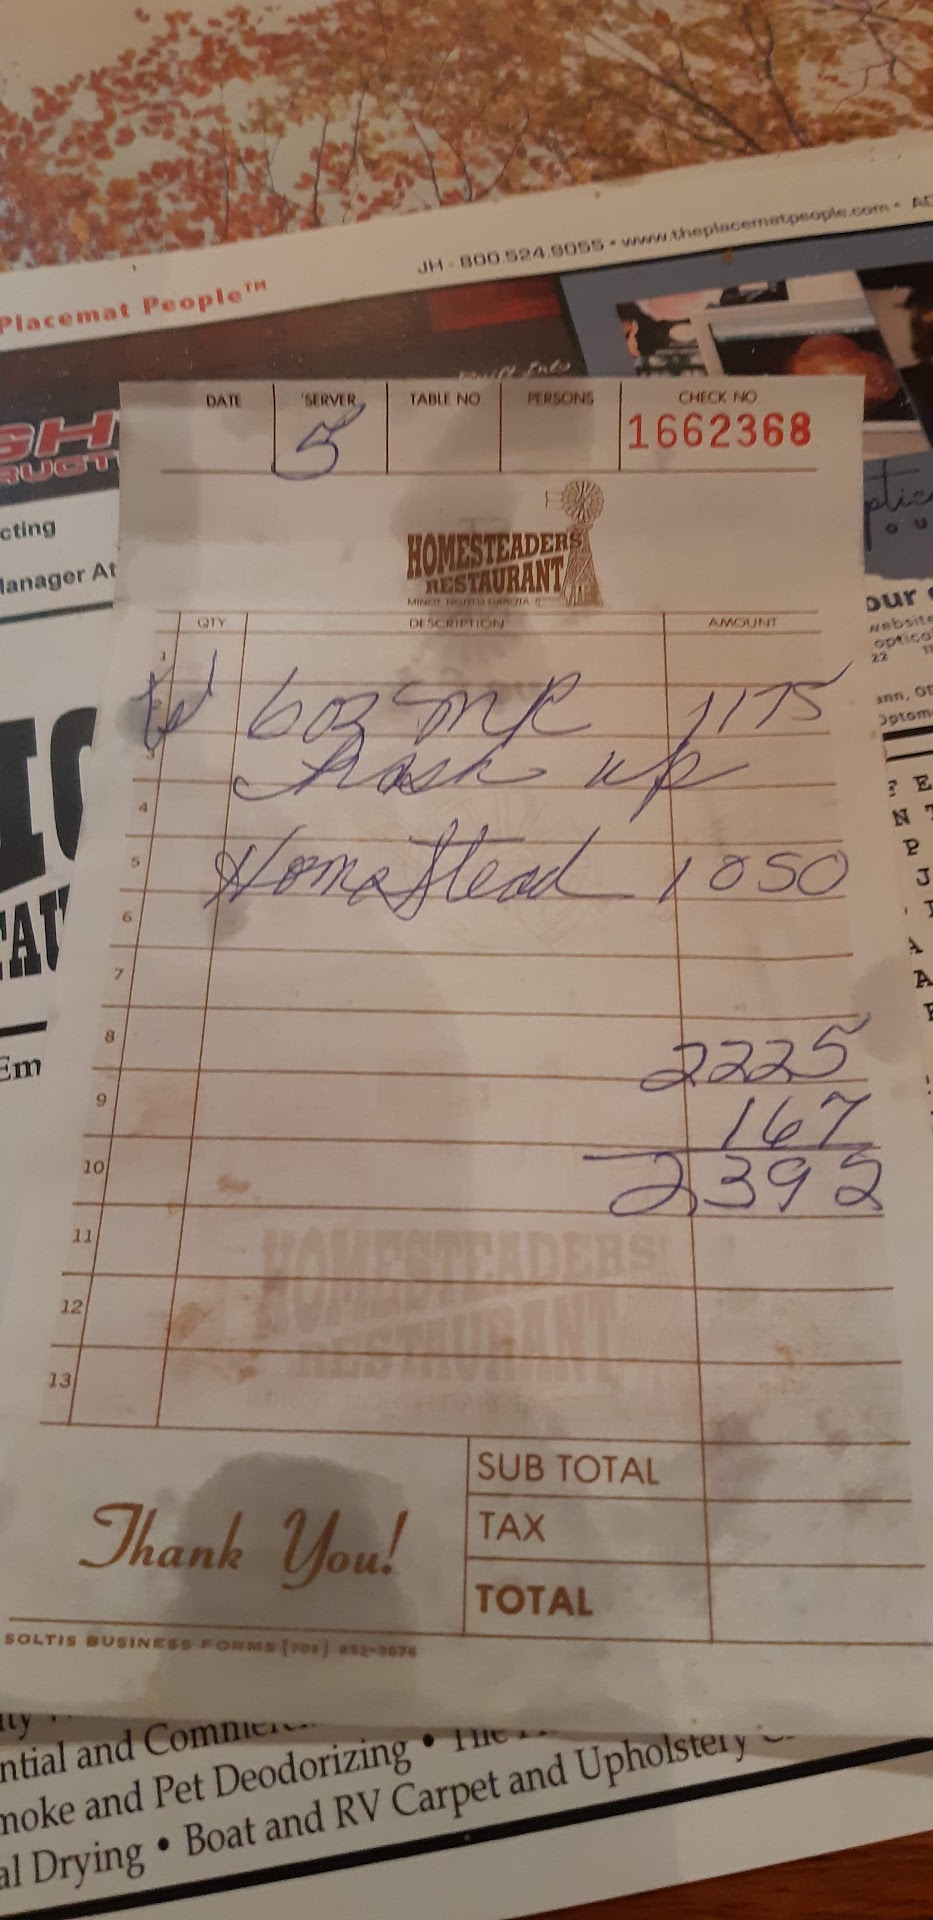 JH - 800.524.9055 • www.theplacematpeople.com •
Placemat People™
DATE SERVER TABLE NO PERSONS CHECK NO
5 1662368
HOMESTEADERS
RESTAURANT
MINOT, NORTH DAKOTA
QTY DESCRIPTION AMOUNT
1
6oz MR 1175
3
Hash up
4
5 HomeStead 1050
6
7
8 2225
9 167
10 2392
11
12
13
HOMESTEADERS
RESTAURANT
SUB TOTAL
Thank You! TAX
TOTAL
SOLTIS BUSINESS FORMS (701) 852-3676
cting
anager At
Em
our
website
optical
22
ntial and
moke and Pet Deodorizing •
al Drying • Boat and RV Carpet and Upholstery